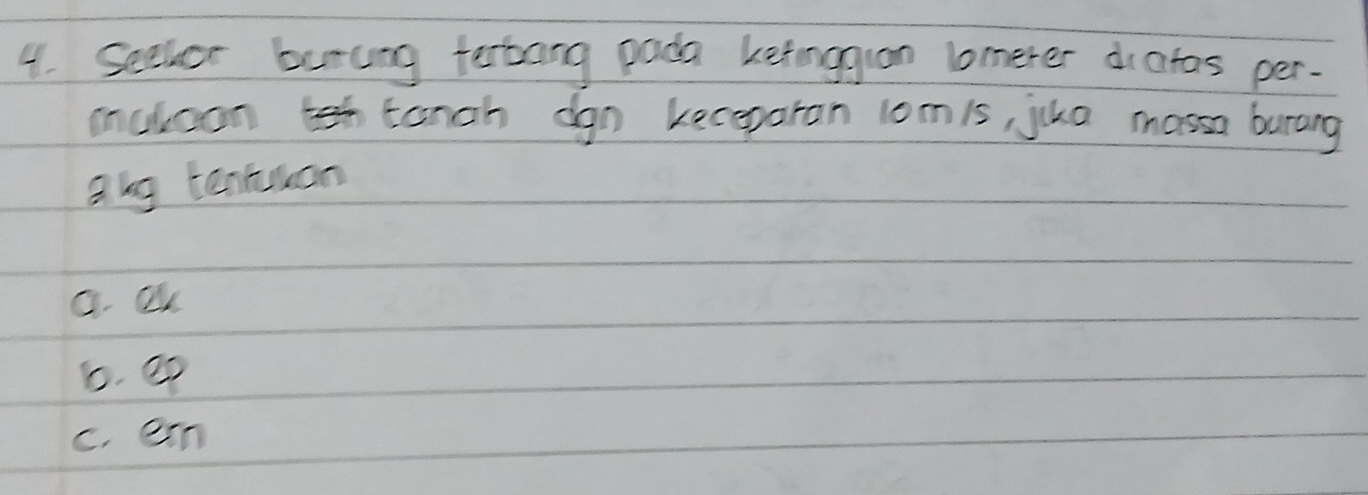 4. Seekor burung terbang pada ketinggian 10meter diatas per-
mukaan tanah dgn kecepatan 10m/s, jika massa burang
2kg tentukan
a. ek
b. ep
c. em